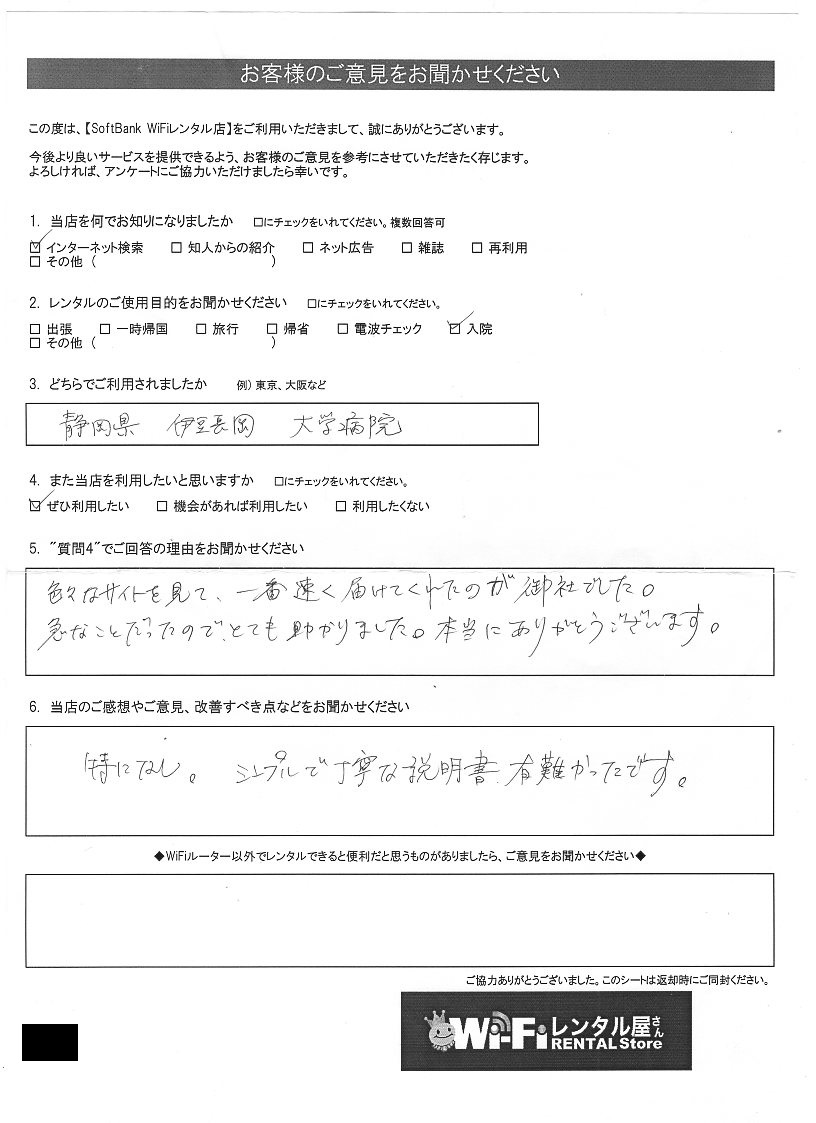 お客様のご意見をお聞かせください
この度は、【SoftBank WiFiレンタル店】をご利用いただきまして、誠にありがとうございます。
今後より良いサービスを提供できるよう、お客様のご意見を参考にさせていただきたく存じます。
よろしければ、アンケートにご協力いただけましたら幸いです。
1. 当店を何でお知りになりましたか　□にチェックをいれてください。複数回答可
☑ インターネット検索　□ 知人からの紹介　□ ネット広告　□ 雑誌　□ 再利用
□ その他（　）
2. レンタルのご使用目的をお聞かせください　□にチェックをいれてください。
□ 出張　□ 一時帰国　□ 旅行　□ 帰省　□ 電波チェック　☑ 入院
□ その他（　）
3. どちらでご利用されましたか　例）東京、大阪など
静岡県　伊豆長岡　大学病院
4. また当店を利用したいと思いますか　□にチェックをいれてください。
☑ ぜひ利用したい　□ 機会があれば利用したい　□ 利用したくない
5. "質問4"でご回答の理由をお聞かせください
色々なサイトを見て、一番速く届けてくれたのが御社でした。
急なことだったので、とても助かりました。本当にありがとうございます。
6. 当店のご感想やご意見、改善すべき点などをお聞かせください
特になし。シンプルで丁寧な説明書、有難かったです。
◆WiFiルーター以外でレンタルできると便利だと思うものがありましたら、ご意見をお聞かせください◆
ご協力ありがとうございました。このシートは返却時にご同封ください。
Wi-Fiレンタル屋さん
RENTAL Store